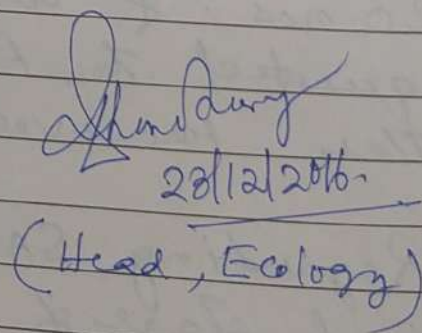 23/12/2016.
(Head, Ecology)